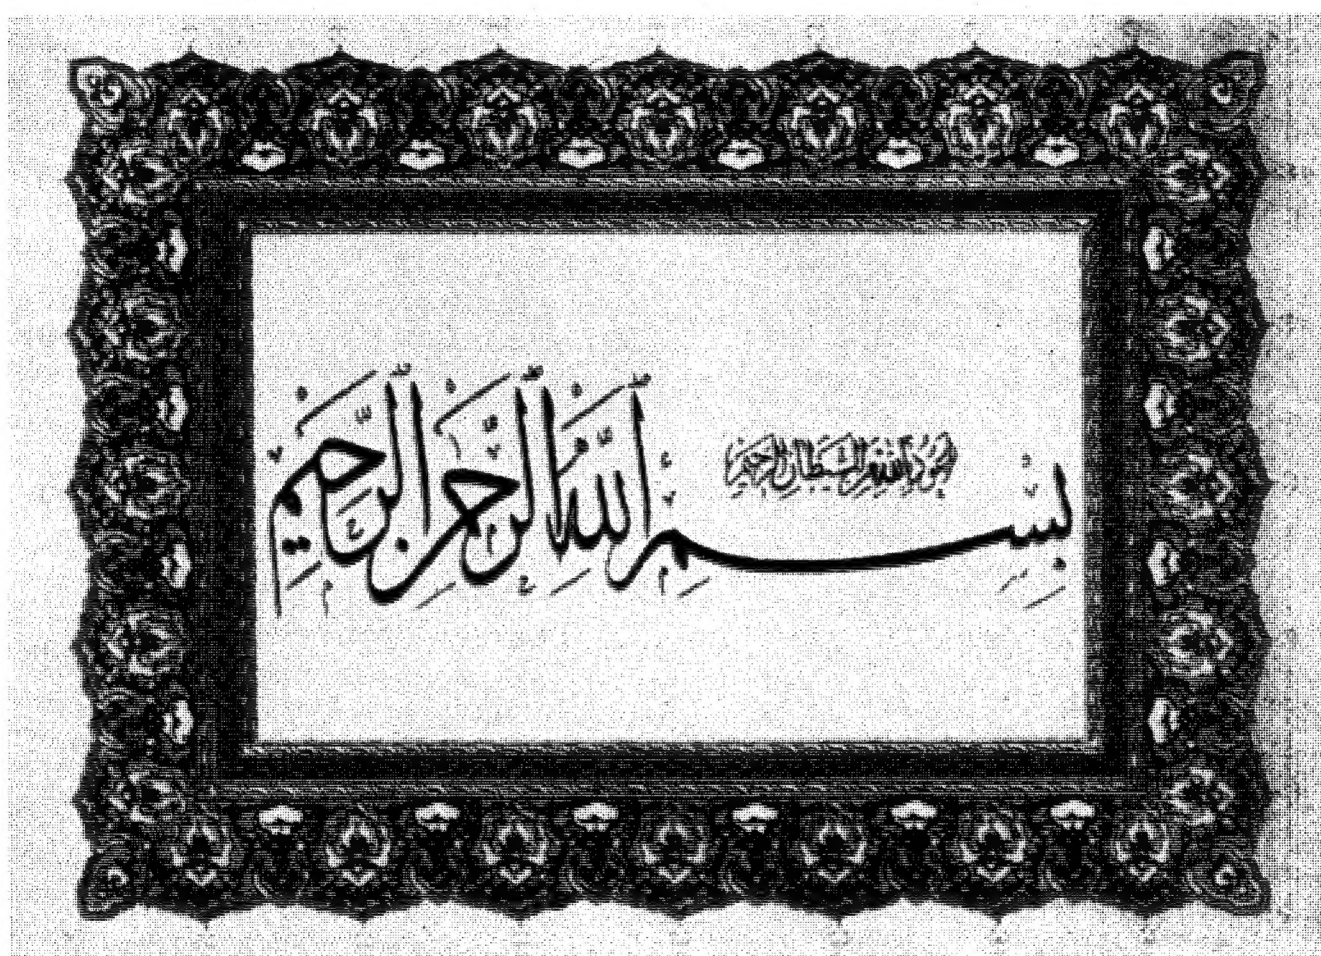 أعوذ بالله من الشيطان الرجيم
بِسْمِ اللَّهِ الرَّحْمٰنِ الرَّحِيمِ